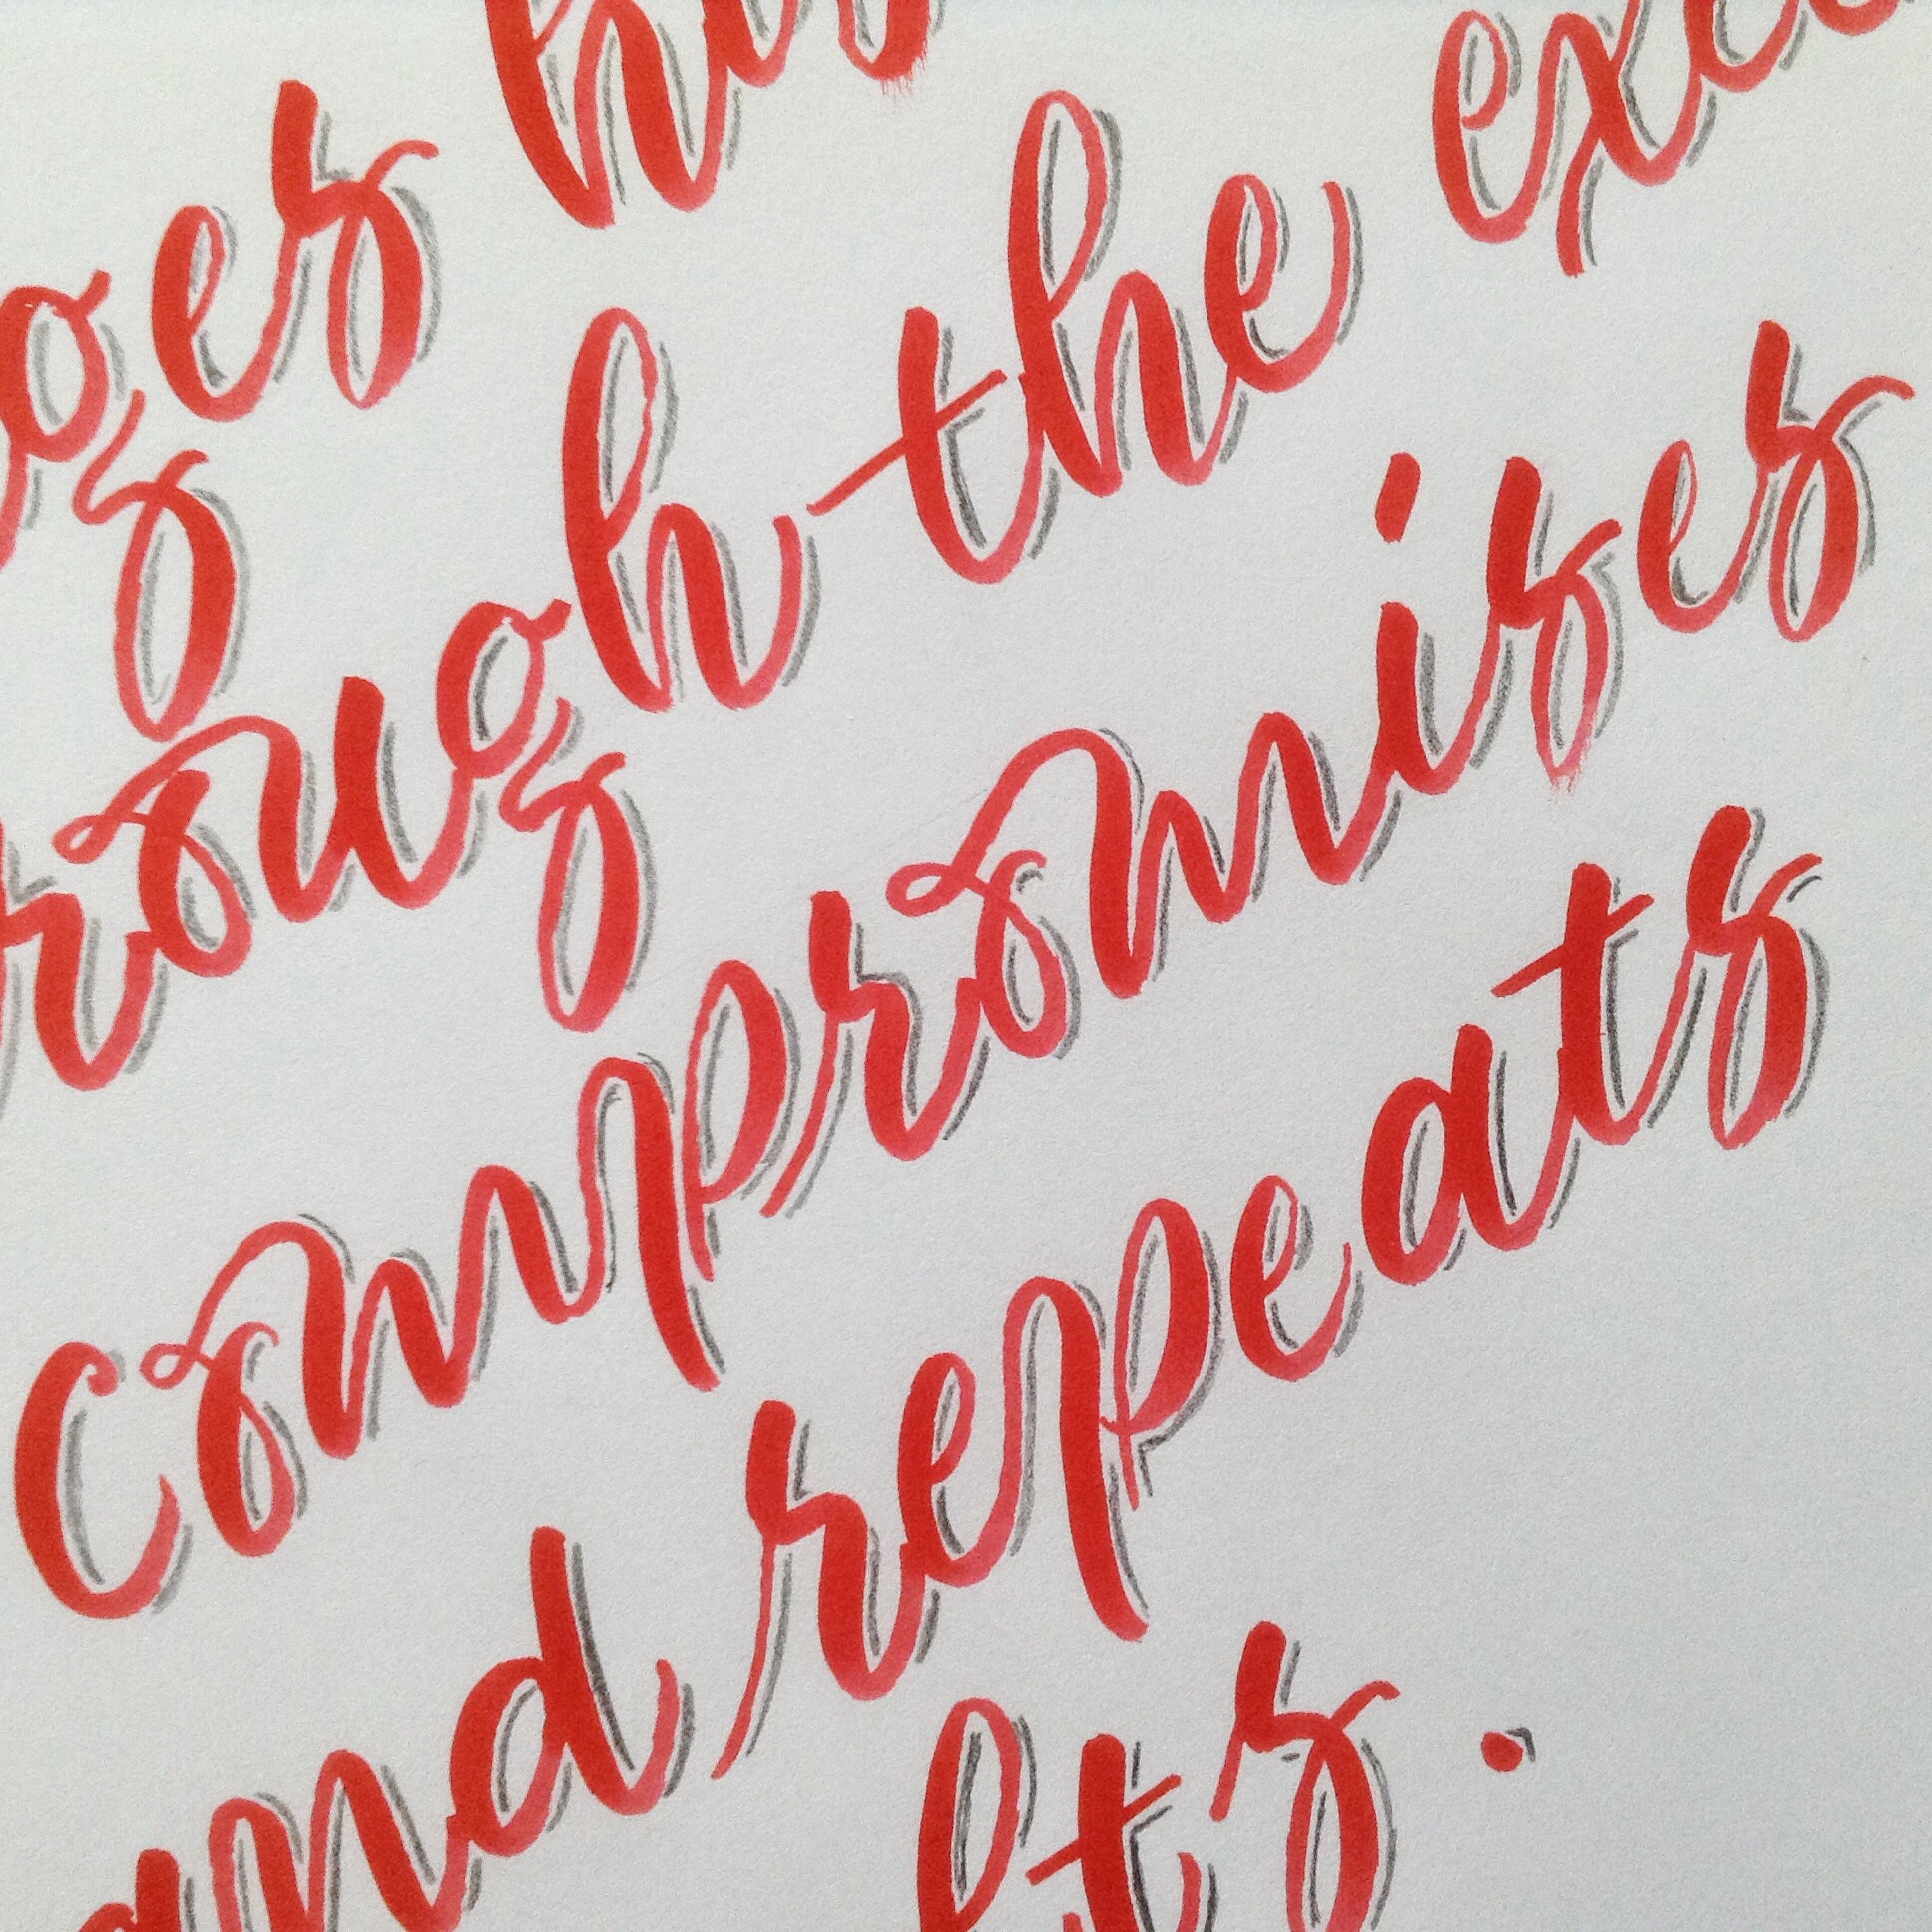 ges his
rough the exc
compromises
and repeats
lts.